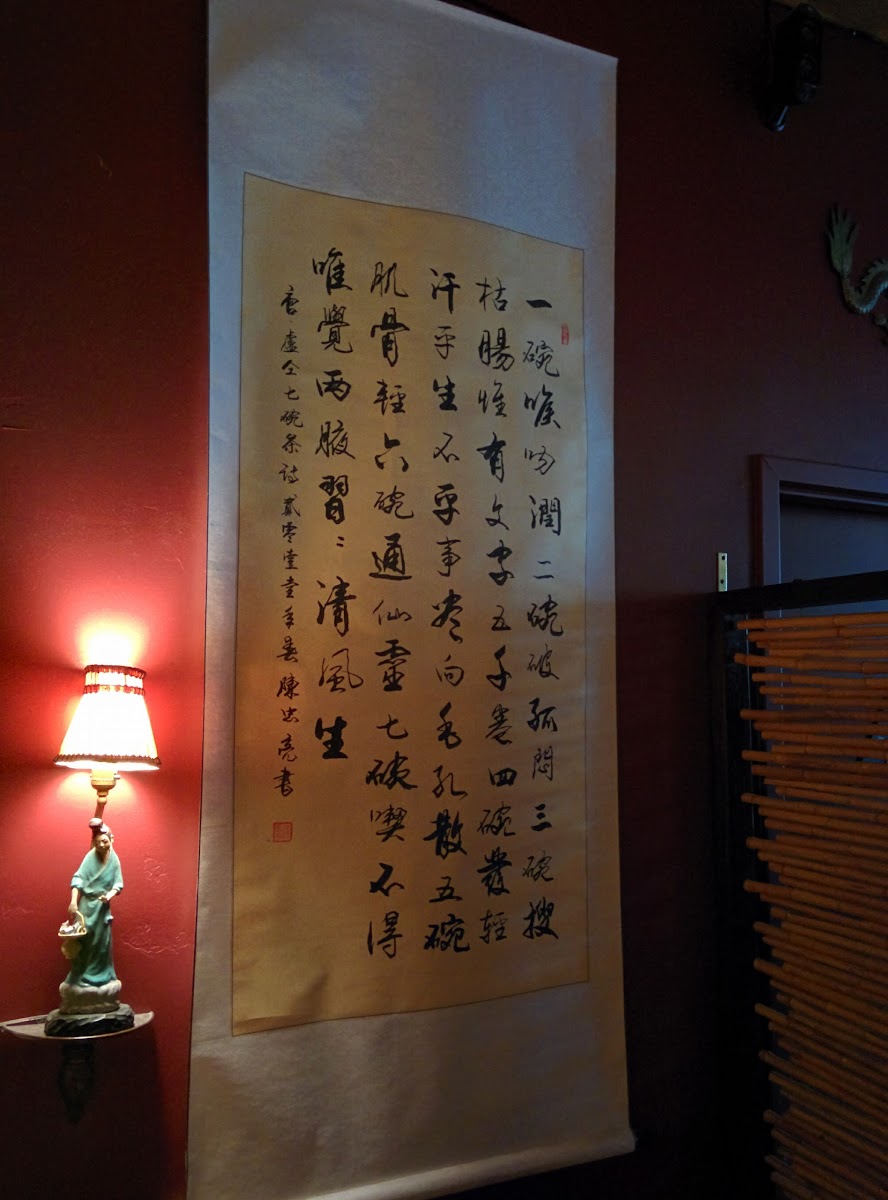 一碗喉吻潤二碗破孤悶三碗搜
枯腸惟有文字五千卷四碗發輕
汗平生不平事盡向毛孔散五碗
肌骨輕六碗通仙靈七碗喫不得
唯覺兩腋習〻清風生
唐·盧仝七碗茶詩貳零壹壹年春陳忠亮書